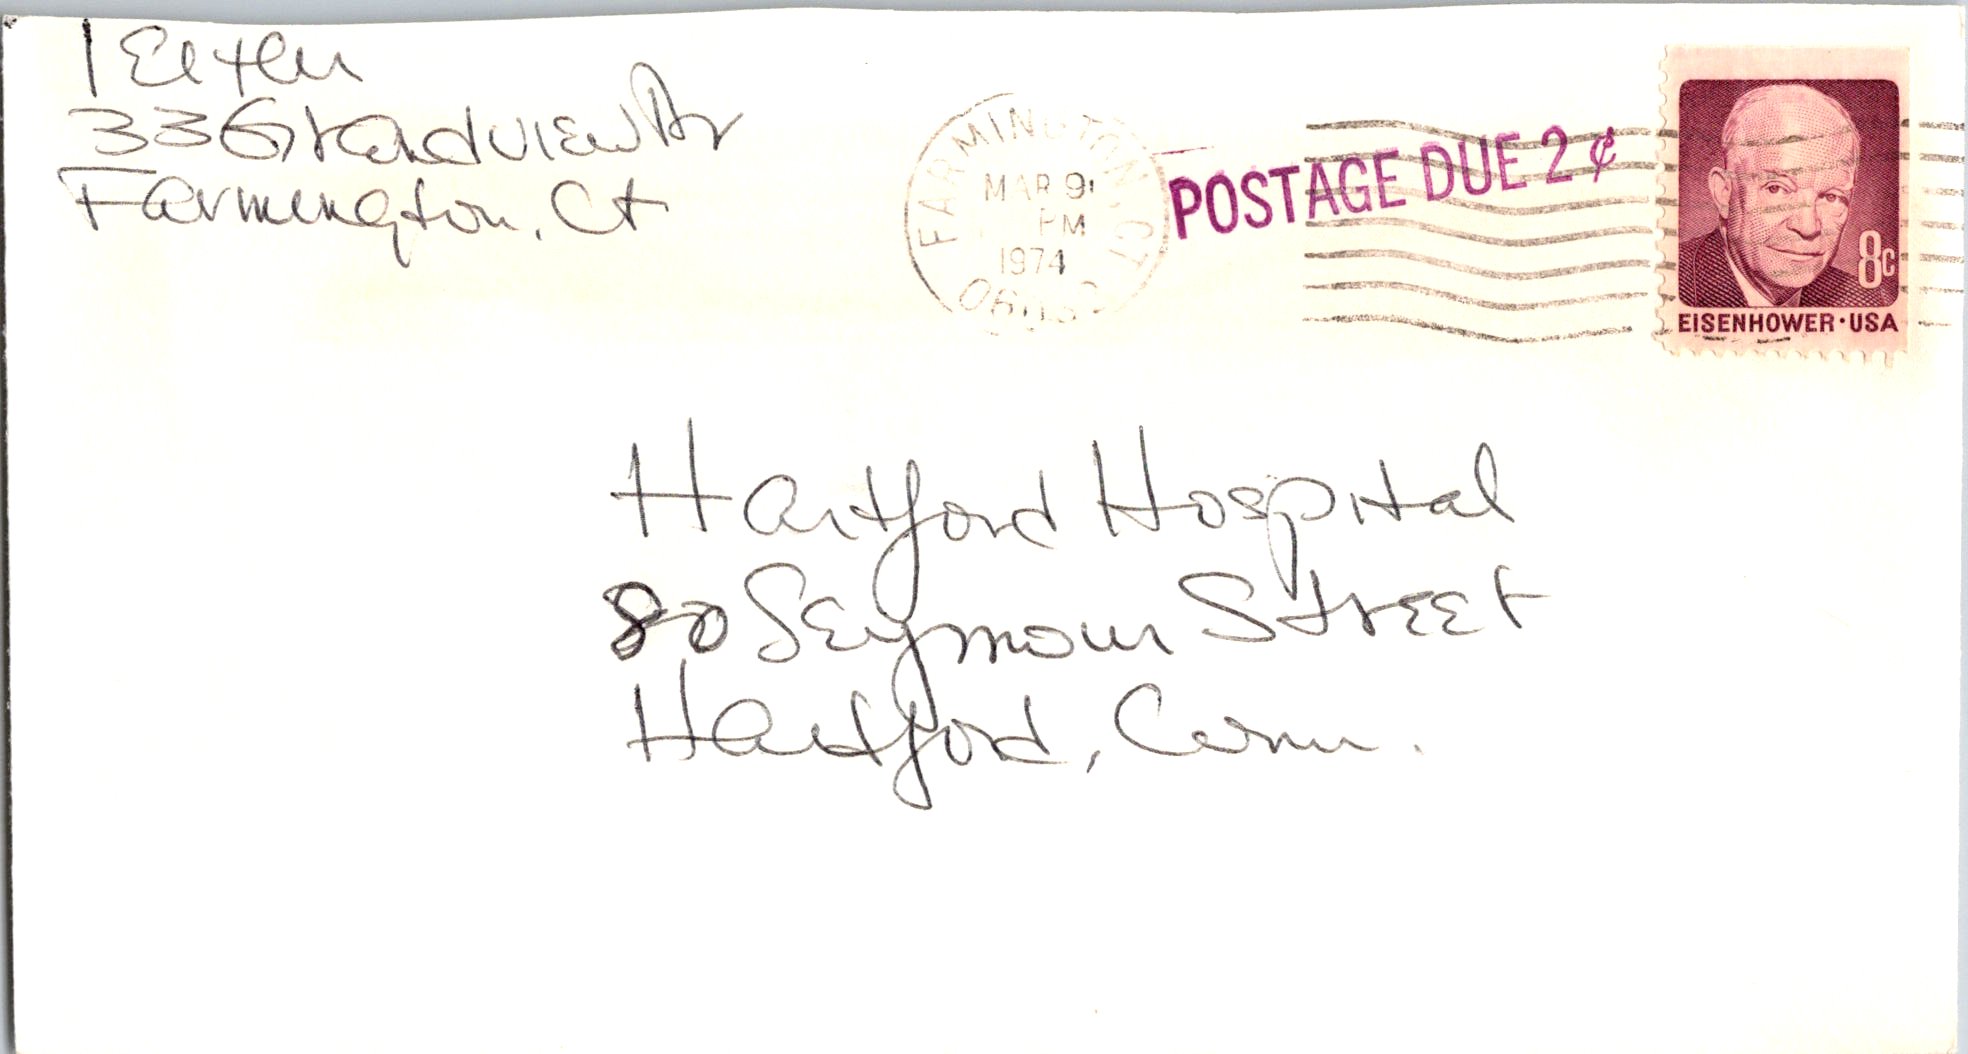 33 Grandview Dr
Farmington, Ct
FARMINGTON, CT
MAR 9
PM
1974
POSTAGE DUE 2 ¢
8c
EISENHOWER · USA
Hartford Hospital
80 Seymour Street
Hartford, Conn.